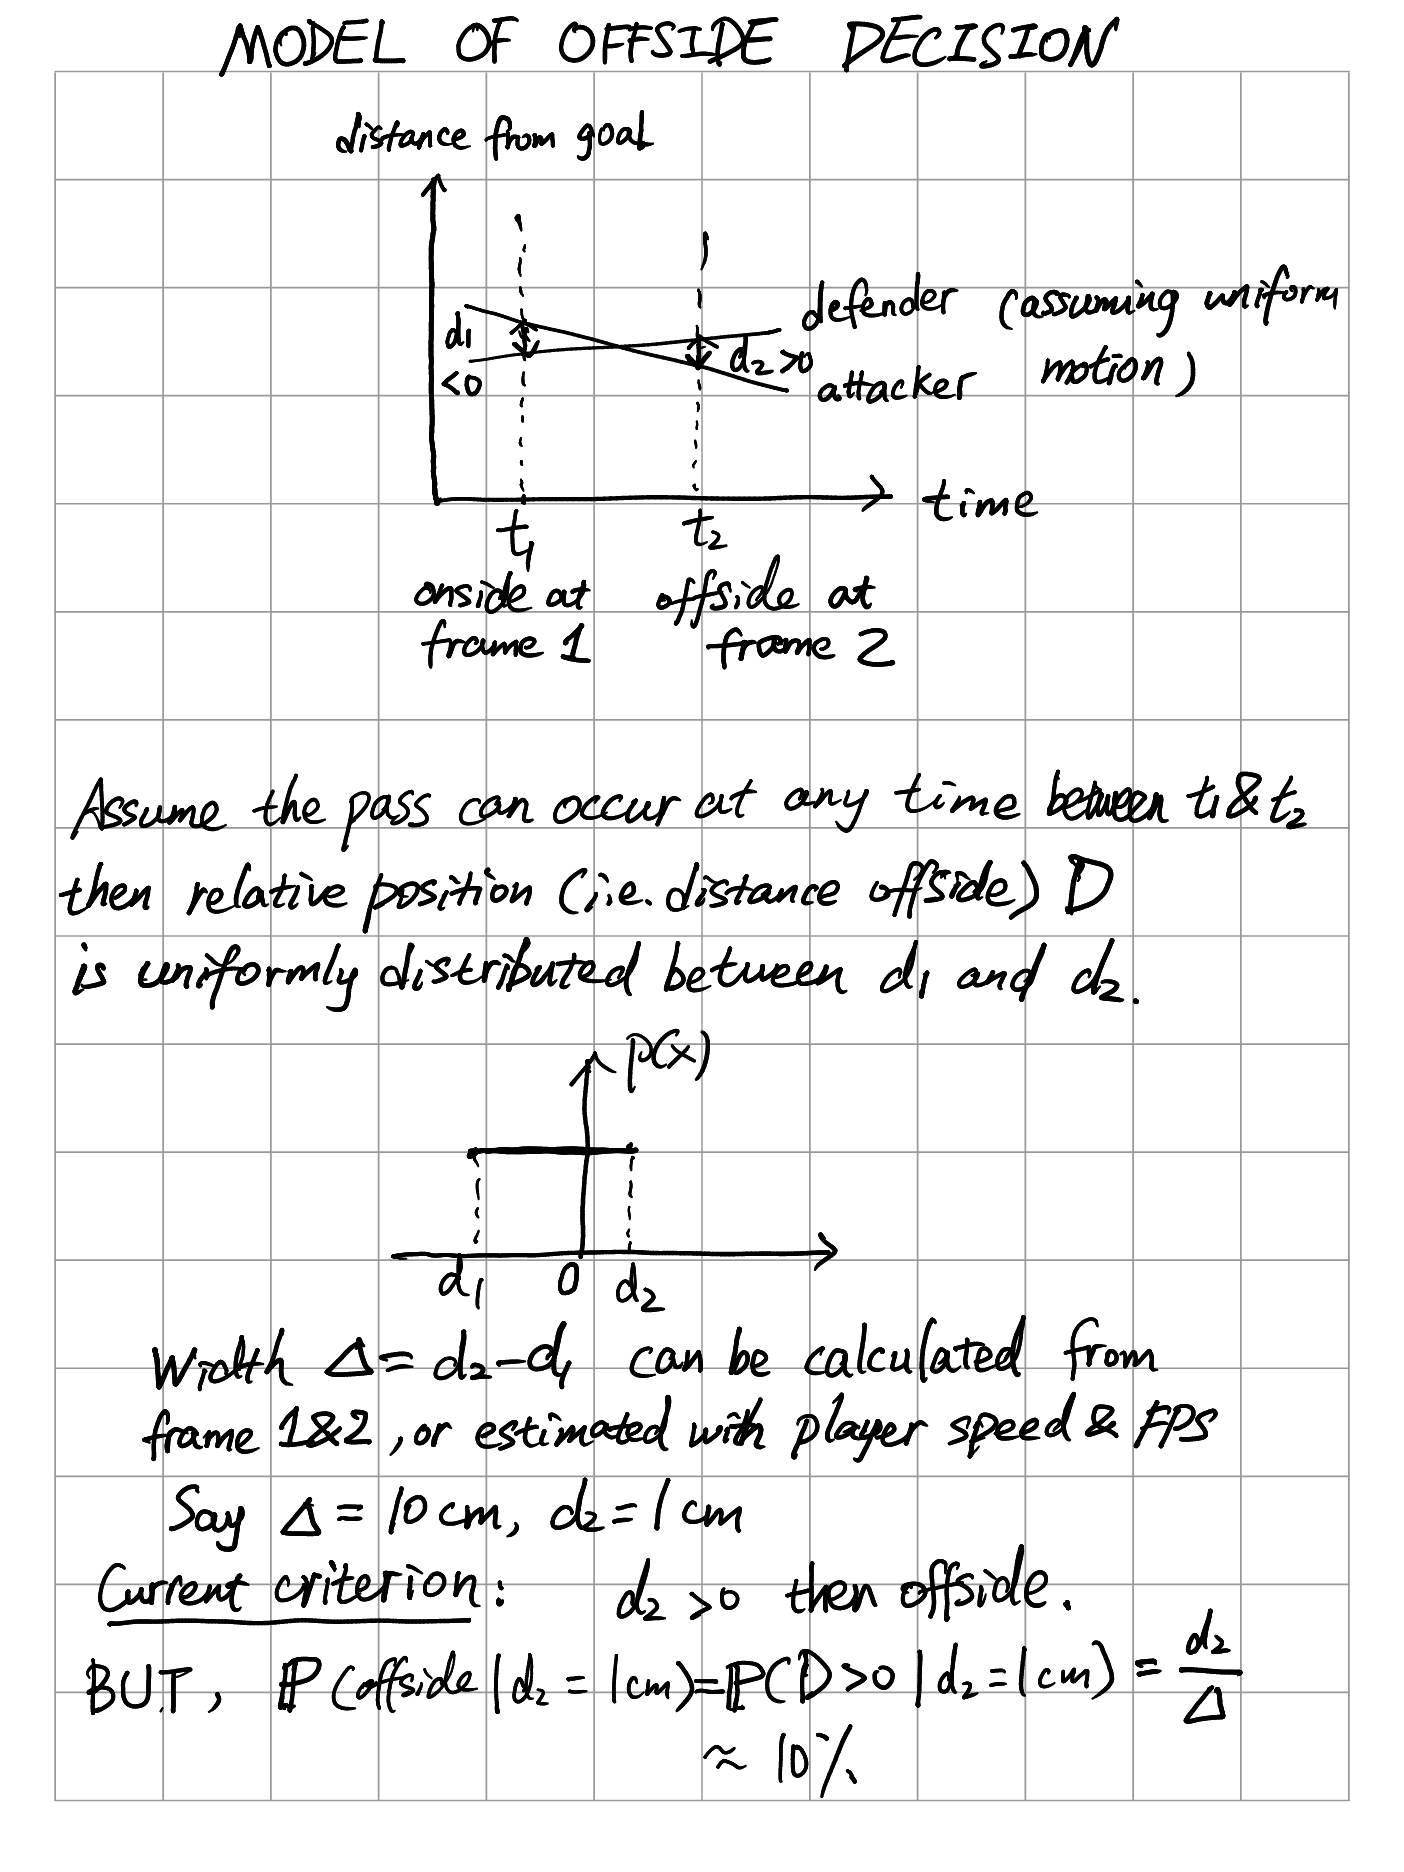 MODEL OF OFFSIDE DECISION
distance from goal
defender (assuming uniform
motion)
d₁
<0
d₂>0
attacker
time
t₁ t₂
onside at offside at
frame 1 frame 2
Assume the pass can occur at any time between t₁ & t₂
then relative position (i.e. distance offside) D
is uniformly distributed between d₁ and d₂.
p(x)
d₁ 0 d₂
Width Δ = d₂-d₁ can be calculated from
frame 1&2, or estimated with player speed & FPS
Say Δ = 10 cm, d₂ = 1 cm
Current criterion: d₂ >0 then offside.
BUT, ℙ(offside | d₂ = 1cm) = ℙ(D>0 | d₂ = 1cm) = d₂/Δ
≈ 10%